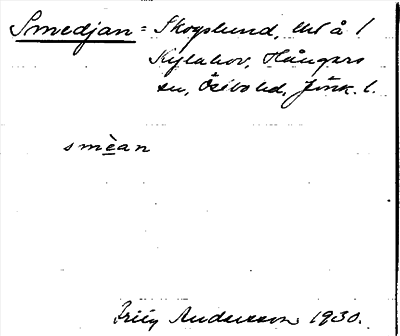 Smedjan = Skogslund, tht å 1
Kylahov, Hångers
sn, Östbo hd, Jönk. l.
smèan
Frity Andersson 1930.